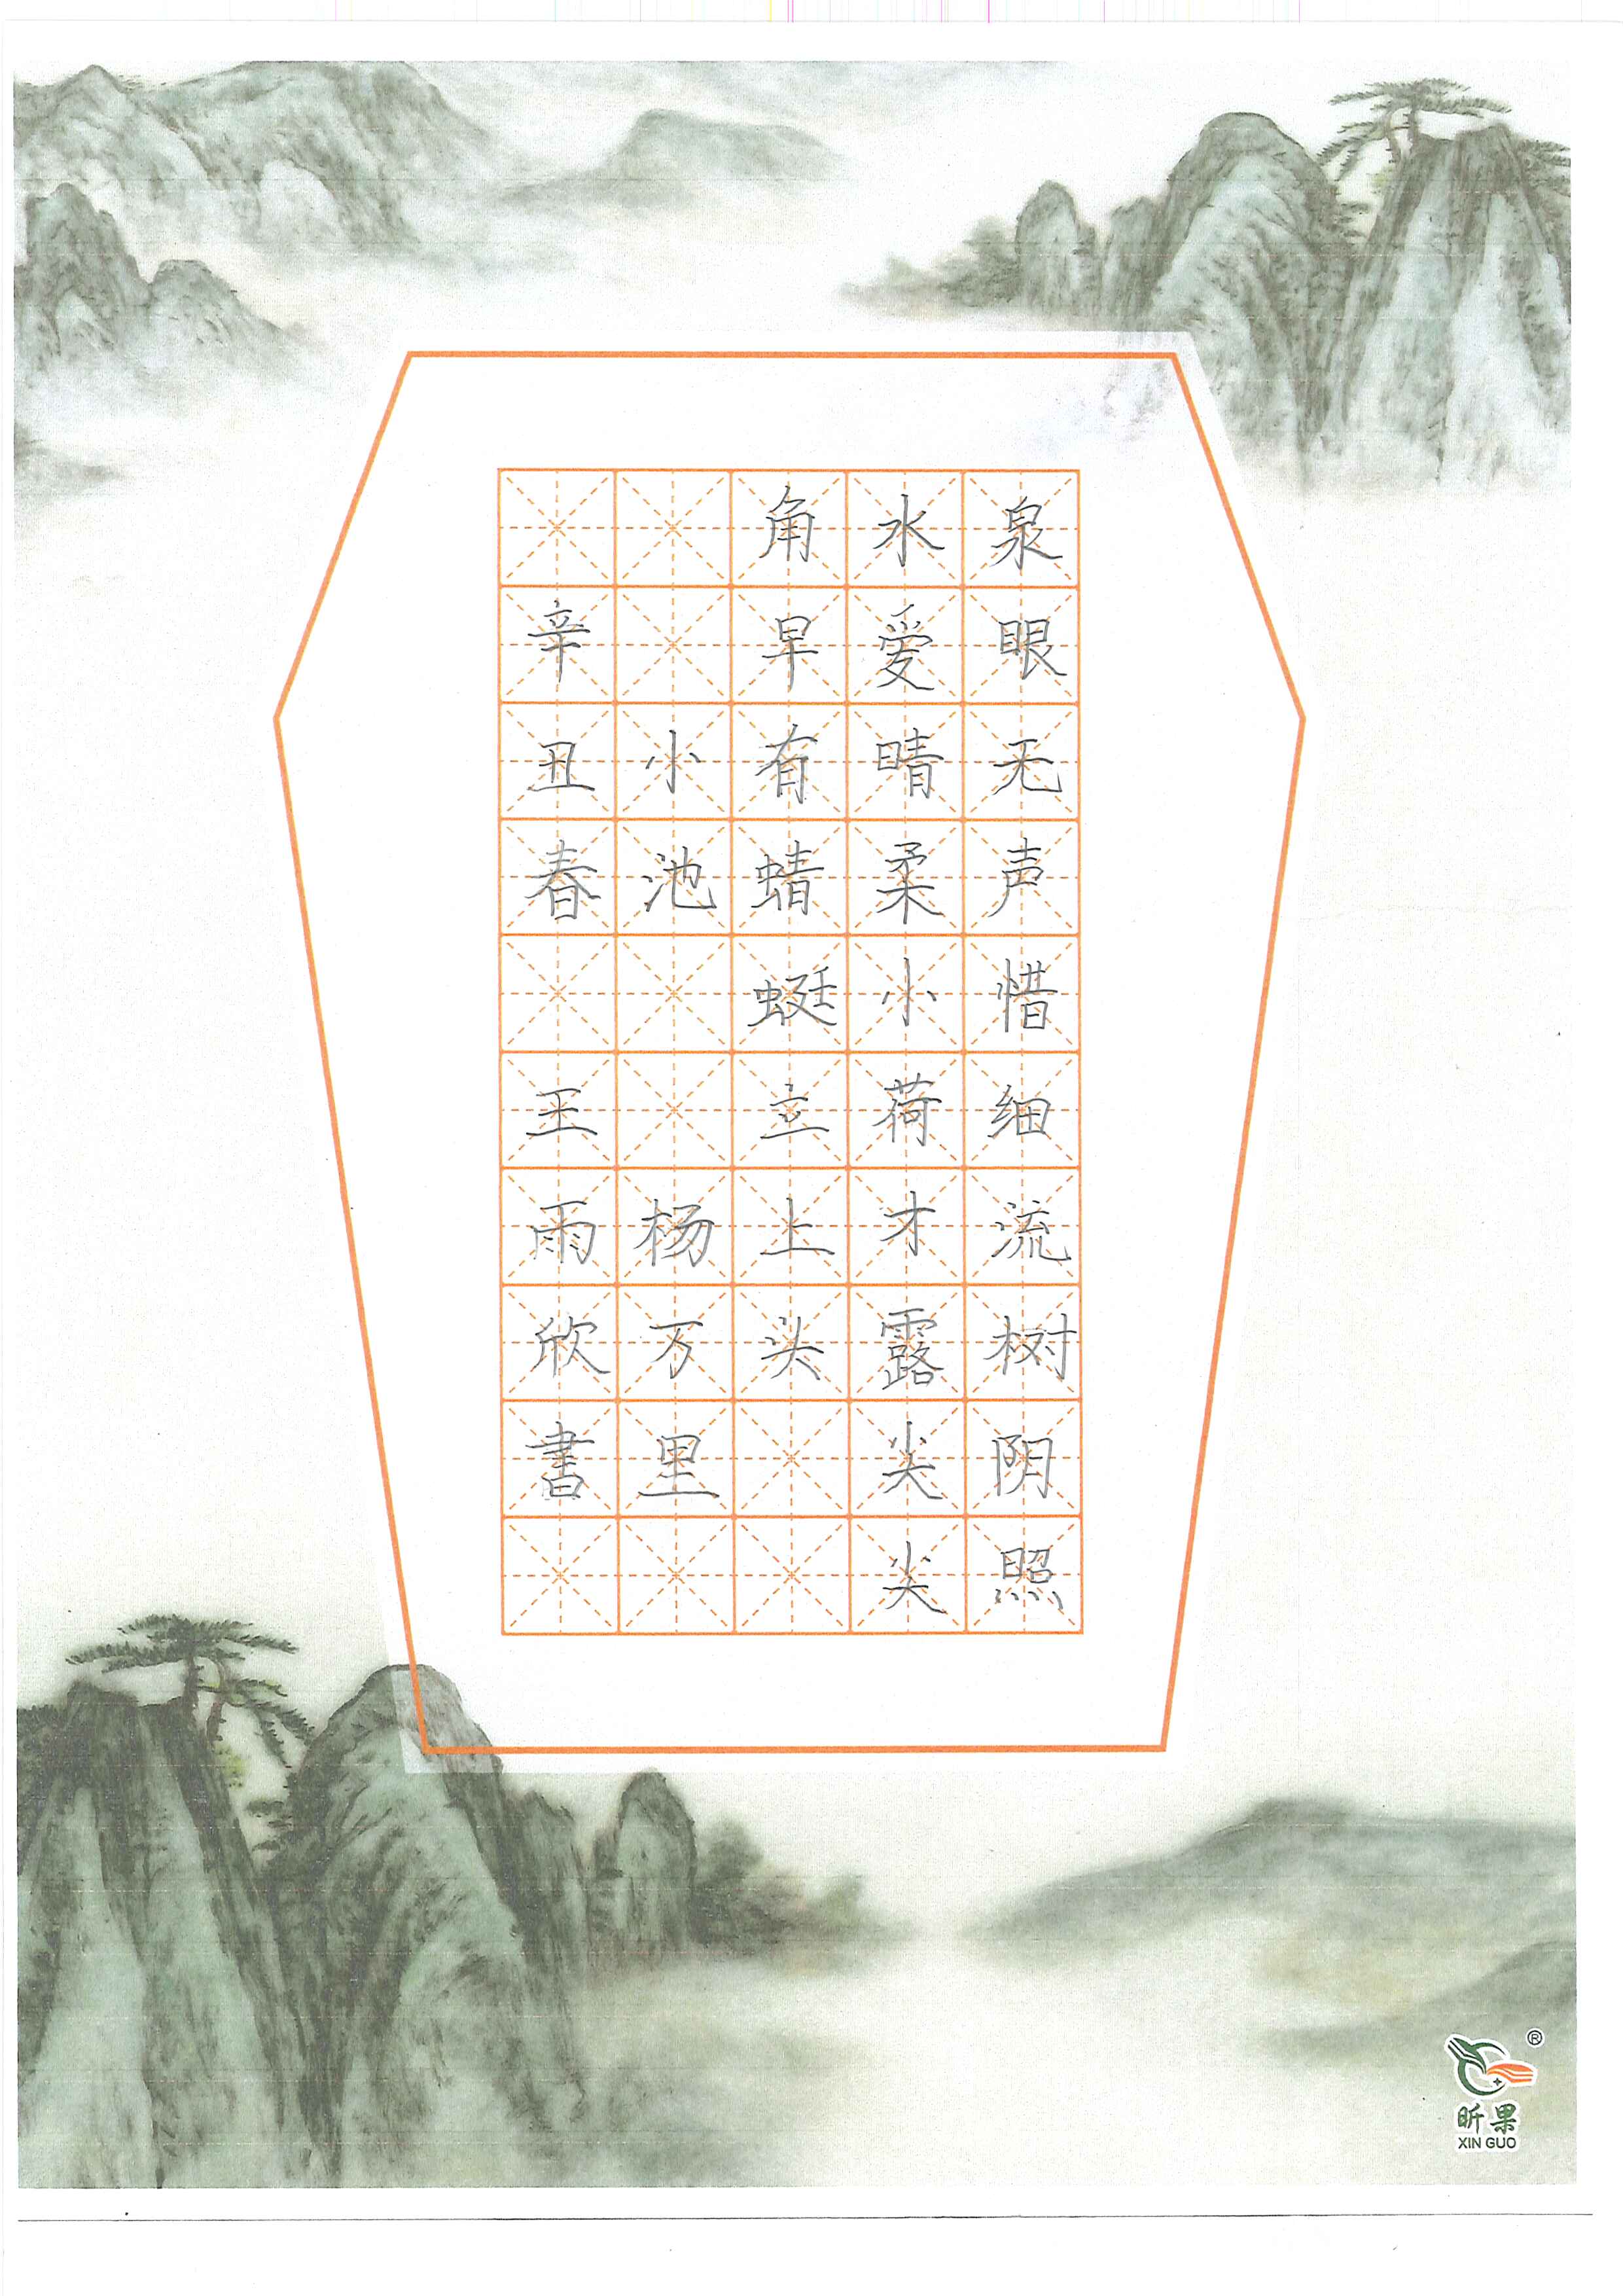 泉眼无声惜细流树阴照
水爱晴柔小荷才露尖尖
角早有蜻蜓立上头
小池 杨万里
辛丑春 王雨欣書
昕果
XIN GUO
®